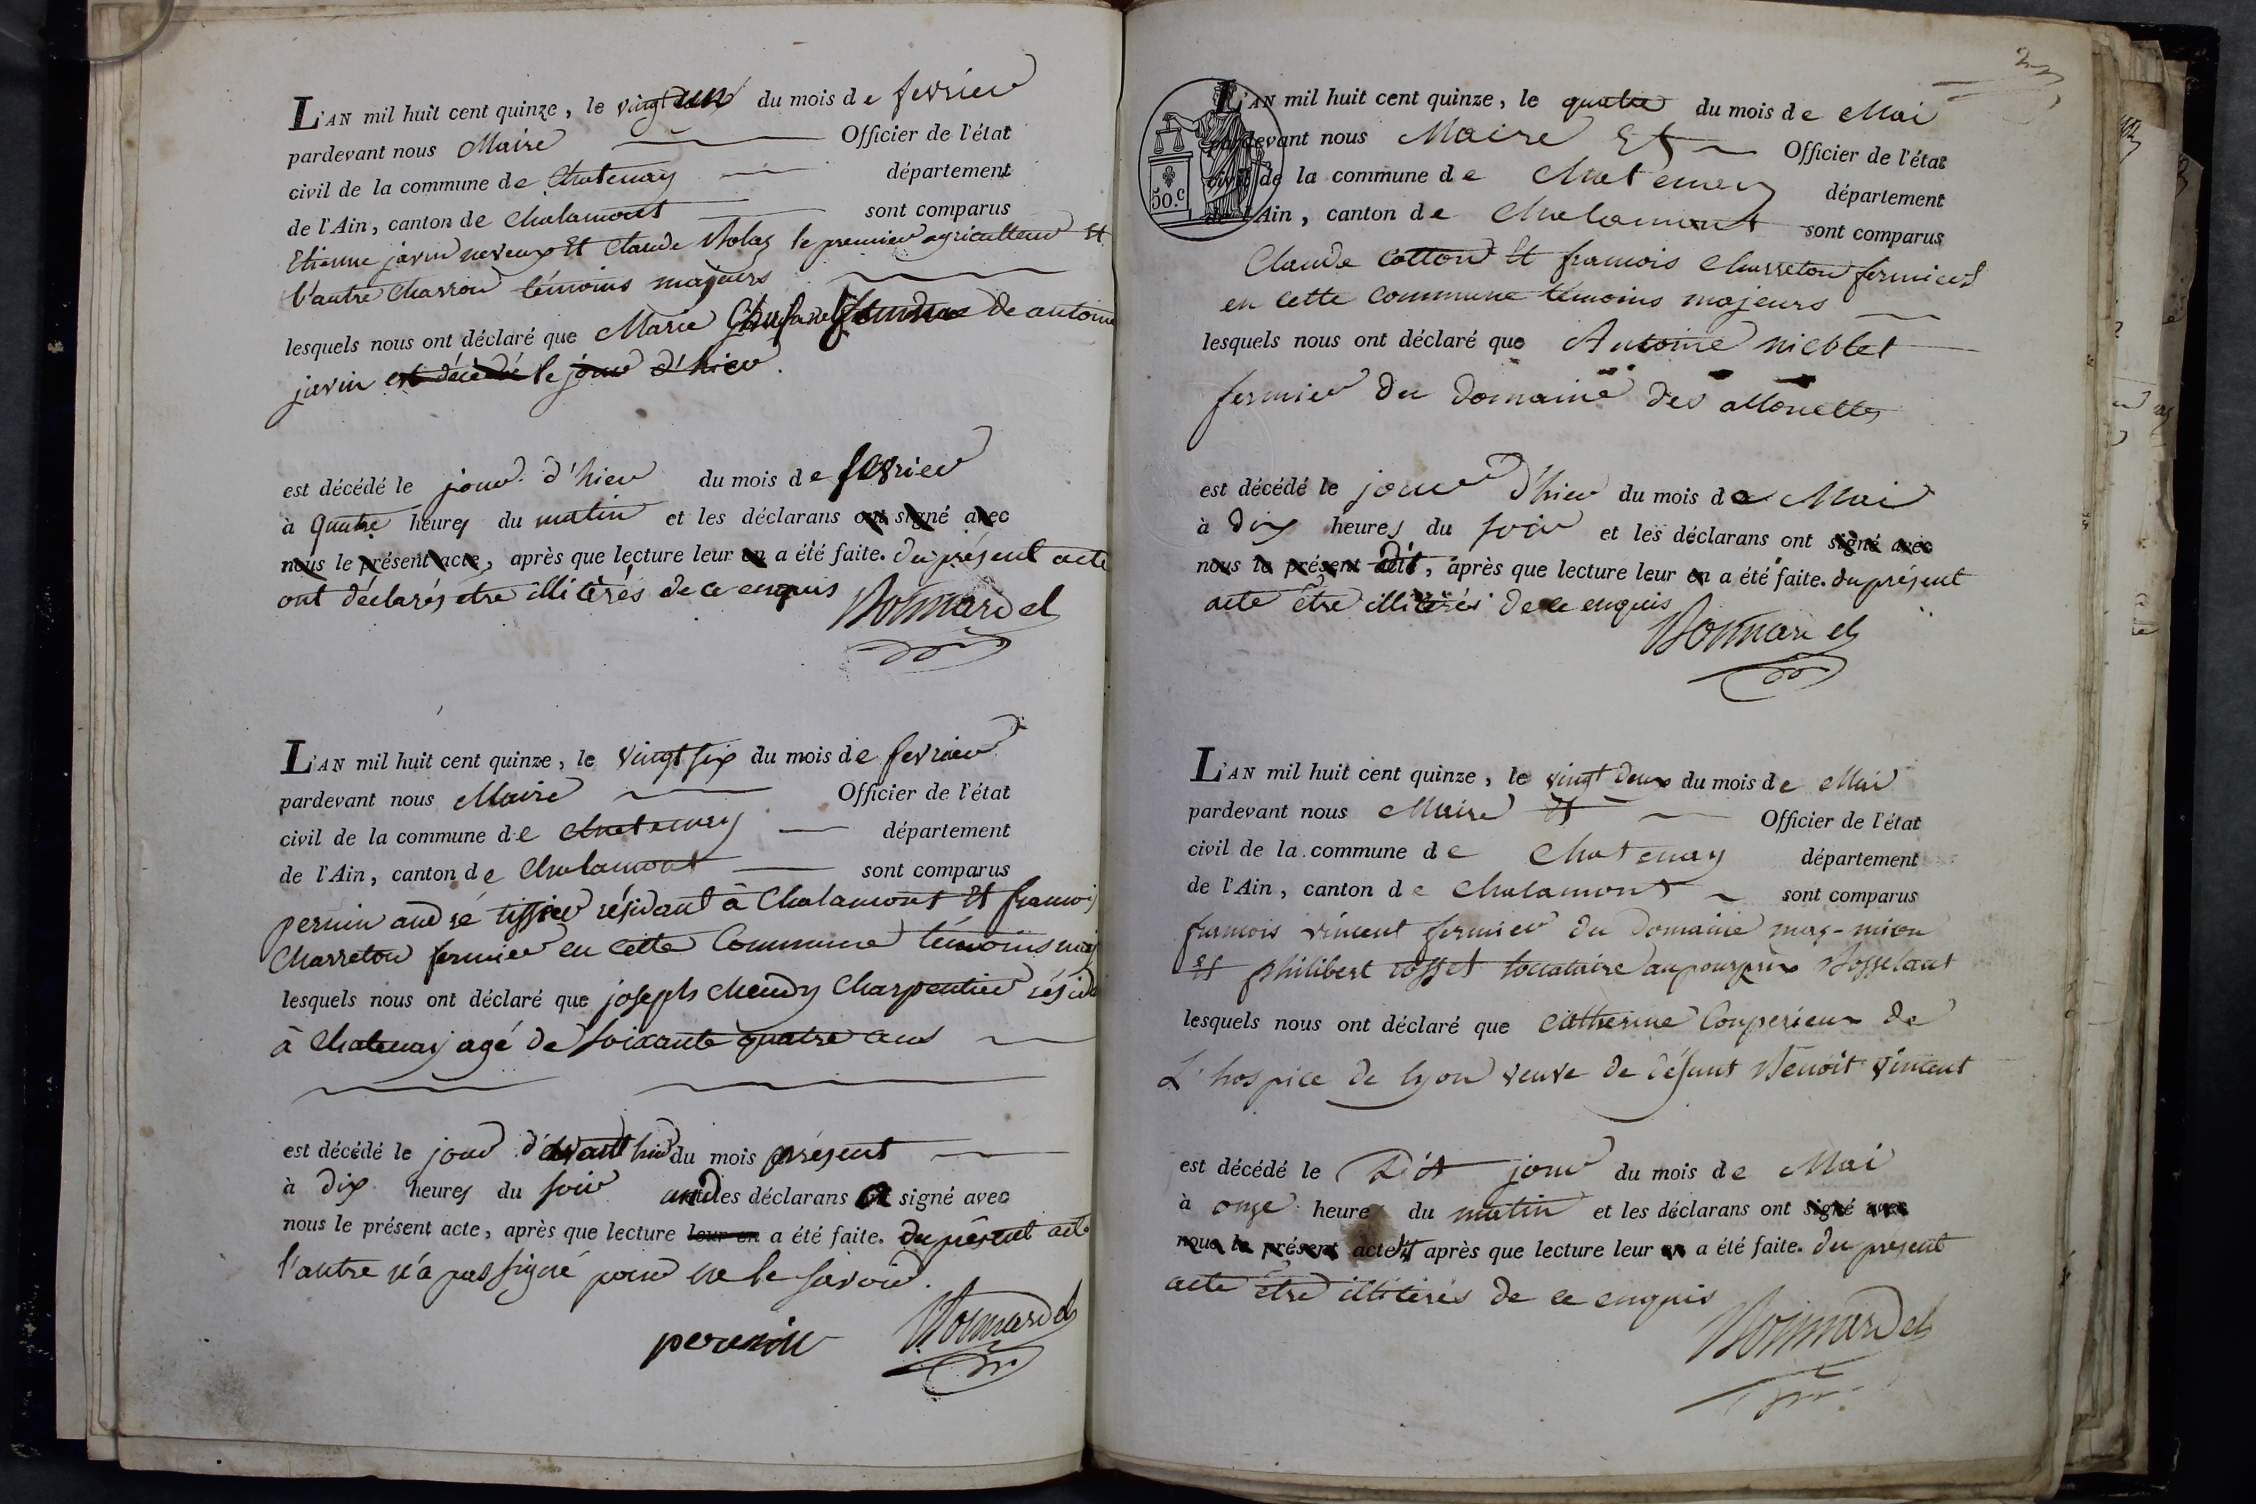 L'AN mil huit cent quinze, le vingt un du mois de fevrier
pardevant nous Maire Officier de l'état
civil de la commune de Chatenay département
de l'Ain, canton de Chalamont sont comparus
Etienne javin neveux Et Claude le premier agriculteur Et
l'autre charron témoins majeurs
lesquels nous ont déclaré que Marie de antoine
javin est décédé le jour d'hier.
est décédé le jour d'hier du mois de fevrier
à quatre heures du matin et les déclarans ont signé avec
nous le présent acte, après que lecture leur en a été faite. du présent acte
ont déclarés etre illitérés de ce enquis
Bonnardel
L'AN mil huit cent quinze, le vingt six du mois de fevrier
pardevant nous Maire Officier de l'état
civil de la commune de Chatenay département
de l'Ain, canton de Chalamont sont comparus
pernin andré tissier résidant à Chalamont Et francois
Charreton fermier en cette Commune témoins maj
lesquels nous ont déclaré que joseph chendy Charpentier résida
à Chatenay agé de soixante quatre ans
est décédé le jour d'avant hier du mois présent
à dix heures du soir des déclarans a signé avec
nous le présent acte, après que lecture leur en a été faite. du présent acte
l'autre n'a pas signé pour ne le savoir.
Bonnardel
L'AN mil huit cent quinze, le quatre du mois de Mai
pardevant nous Maire Et Officier de l'état
civil de la commune de Chatenay département
50.C
de l'Ain, canton de Chalamont sont comparus
Claude Cotton Et francois Charreton fermiers
en cette Commune témoins majeurs
lesquels nous ont déclaré que Antoine nieblet
fermier du domaine des allouettes
est décédé le jour d'hier du mois de Mai
à dix heures du soir et les déclarans ont signé avec
nous le présent acte, après que lecture leur en a été faite. du présent
acte être illitérés de ce enquis
Bonnardel
L'AN mil huit cent quinze, le vingt deux du mois de Mai
pardevant nous Maire Et Officier de l'état
civil de la commune de Chatenay département
de l'Ain, canton de Chalamont sont comparus
francois vincent fermier du domaine mas-mion
Et philibert rosset locataire au pourprix Bosselant
lesquels nous ont déclaré que Catherine Couperieux de
L'hospice de lyon veuve de défunt Benoit vincent
est décédé le dit jour du mois de Mai
à onze heures du matin et les déclarans ont signé avec
nous le présent acte dit après que lecture leur en a été faite. du present
acte être illitérés de ce enquis
Bonnardel